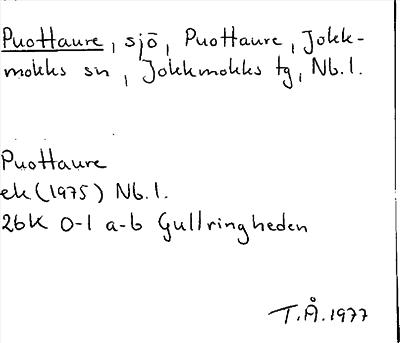 Puottaure, sjö, Puottaure, Jokk-
mokks sn, Jokkmokks tg, Nb.l.
Puottaure
ek (1975) Nb.l.
26K 0-1 a-b Gullringheden
T.Å. 1977